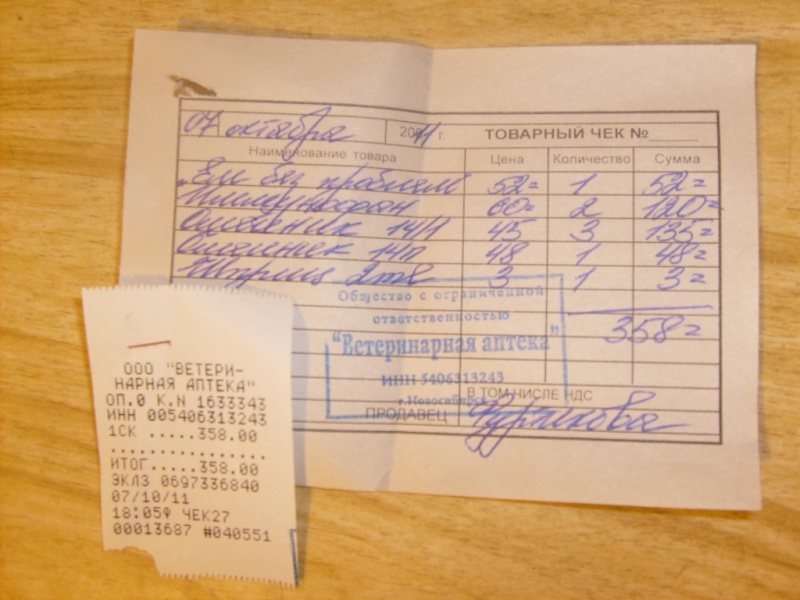 07 октября 2011 г. ТОВАРНЫЙ ЧЕК №
Наименование товара Цена Количество Сумма
"Ем без проблем" 52= 1 52=
Иммунофан 60= 2 120=
Ошейник 14/1 45 3 135=
Ошейник 14п 48 1 48=
Шприц 2мл 3 1 3=
358=
Общество с ограниченной
ответственностью
"Ветеринарная аптека"
ИНН 5406313243
г.Новосибирск
В ТОМ ЧИСЛЕ НДС
ПРОДАВЕЦ
ООО "ВЕТЕРИ-
НАРНАЯ АПТЕКА"
ОП.0 К.N 1633343
ИНН 005406313243
1СК .....358.00
................
ИТОГ.....358.00
ЭКЛЗ 0697336840
07/10/11
18:05Ф ЧЕК27
00013687 #040551